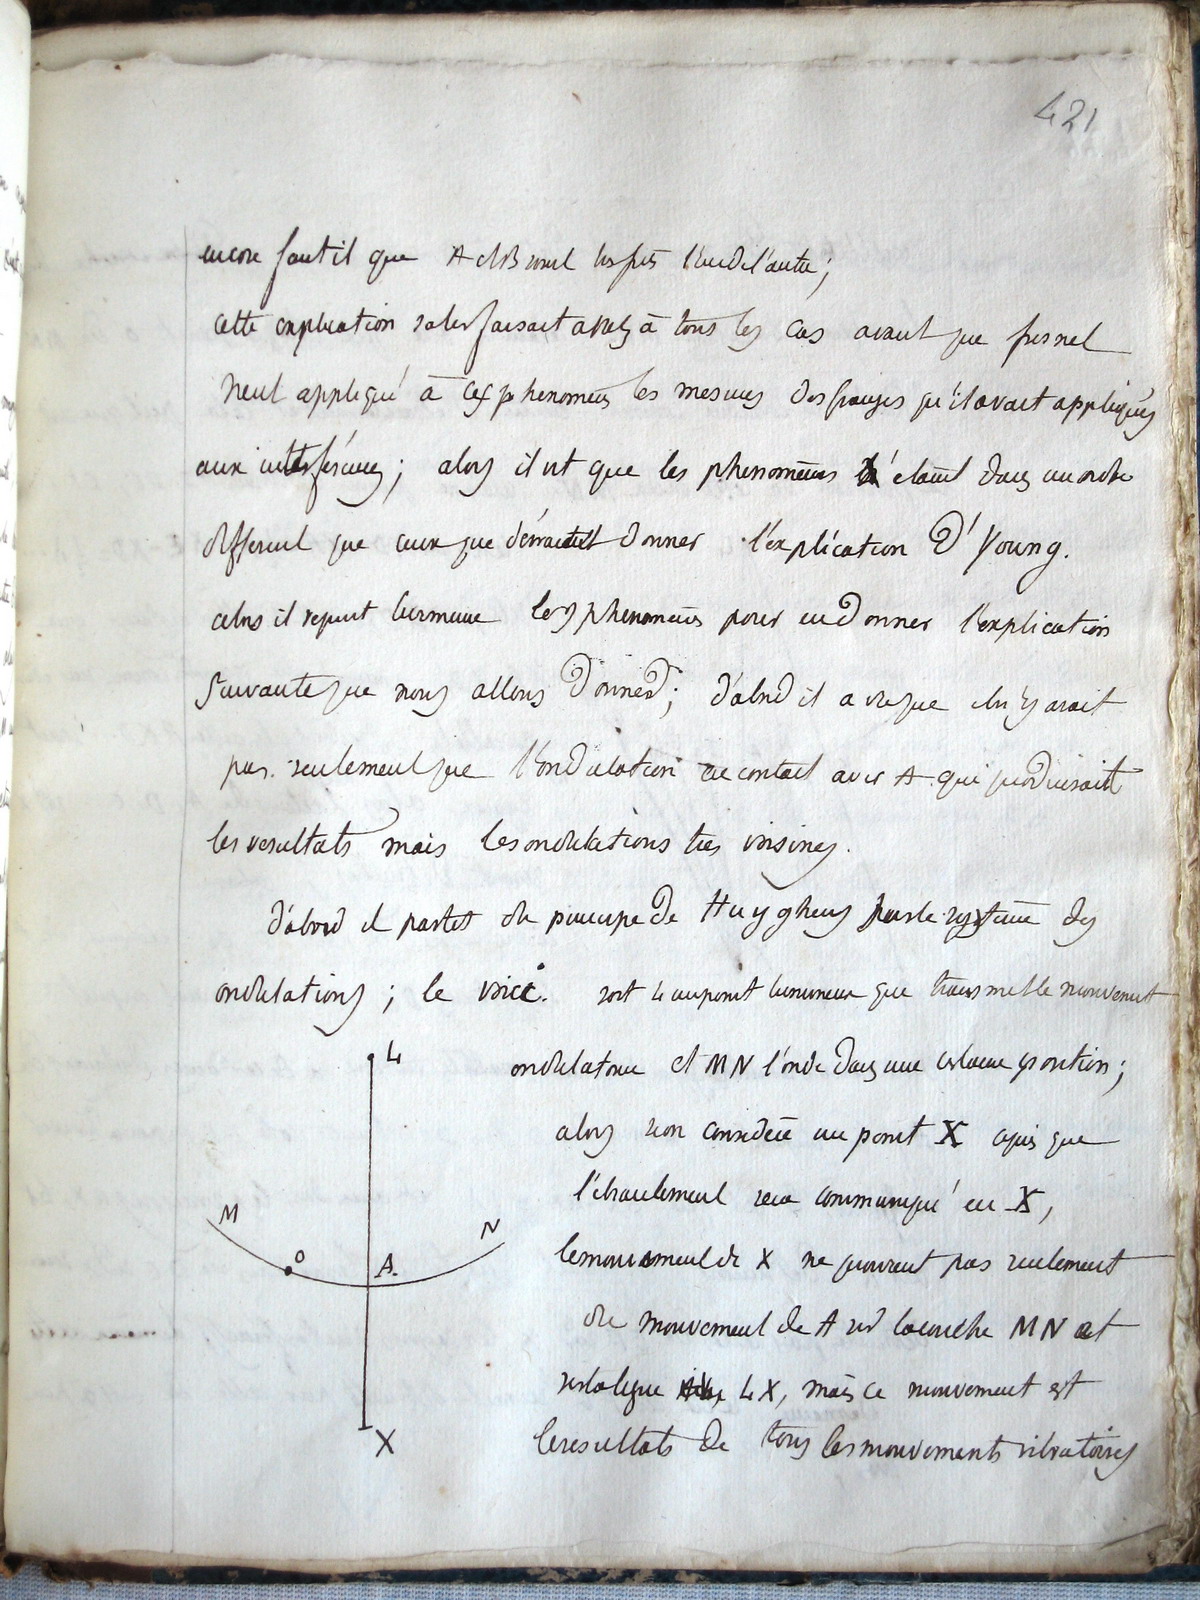 421
encore faut il que A et B soient tres près l'un de l'autre;
cette explication satisfaisait assez à tous les cas avant que fresnel
n'eut appliqué à ces phenomènes les mesures des franges qu'il avait appliqués
aux interférences; alors il vit que les phenomènes étaient dans un ordre
différent que ceux que devraient donner l'explication D'Young.
alors il reprit lui meme les phenomènes pour en donner l'explication
suivante que nous allons Donner; d'abord il a vu que il n'y avait
pas seulement que l'ondulation en contact avec A qui produisait
les resultats mais les ondulations très voisines.
d'abord il partit du principe de Huyghens sur le système des
ondulations; le voici. soit L un point lumineux qui transmet le mouvement
L
ondulatoire et MN l'onde dans une certaine position;
alors si on considère un point X après que
l'ébranlement sera communiqué en X,
M
N
O
A.
le mouvement de X ne provient pas seulement
du mouvement de A sur la couche MN et
sur la ligne LX, mais ce mouvement est
X
le resultats de tous les mouvements vibratoires